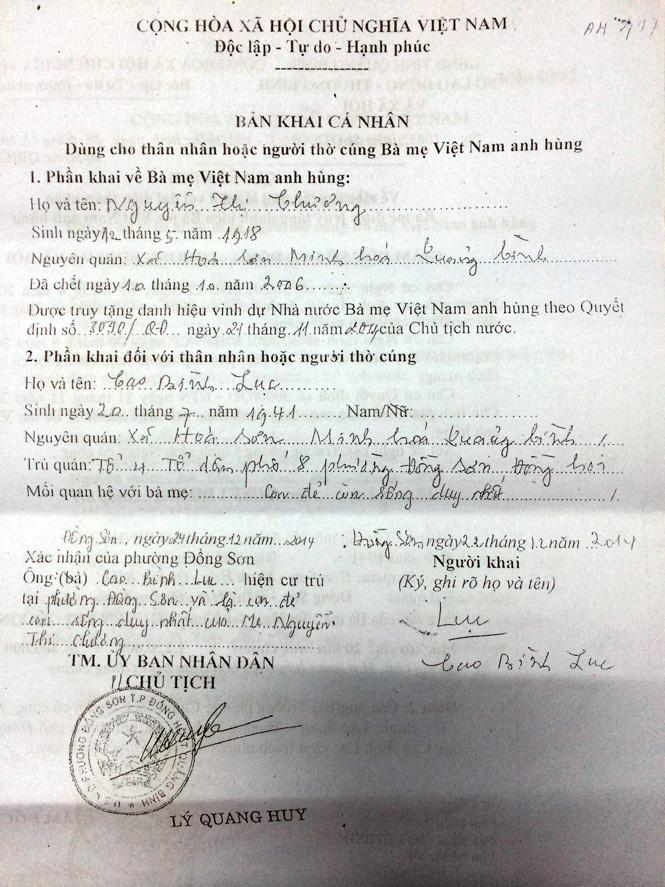 CỘNG HÒA XÃ HỘI CHỦ NGHĨA VIỆT NAM
Độc lập - Tự do - Hạnh phúc
BẢN KHAI CÁ NHÂN
Dùng cho thân nhân hoặc người thờ cúng Bà mẹ Việt Nam anh hùng
1. Phần khai về Bà mẹ Việt Nam anh hùng:
Họ và tên: Nguyễn Thị Chương
Sinh ngày 12 tháng 5 năm 1918
Nguyên quán: Xã Hoá Sơn Minh hoá Quảng bình
Đã chết ngày 10 tháng 10 năm 2006
Được truy tặng danh hiệu vinh dự Nhà nước Bà mẹ Việt Nam anh hùng theo Quyết
định số 3090/QĐ ngày 21 tháng 11 năm 2014 của Chủ tịch nước.
2. Phần khai đối với thân nhân hoặc người thờ cúng
Họ và tên: Cao Bình Lục
Sinh ngày 20 tháng 7 năm 1941 Nam/Nữ:
Nguyên quán: Xã Hoá Sơn Minh hoá Quảng bình
Trú quán: Tổ 4 Tổ dân phố 8 phường Đồng Sơn Đồng hới
Mối quan hệ với bà mẹ: Con đẻ còn sống duy nhất
Đồng Sơn, ngày 24 tháng 12 năm 2014
Đồng Sơn ngày 22 tháng 12 năm 2014
Xác nhận của phường Đồng Sơn
Người khai
Ông (bà) Cao Bình Lục hiện cư trú
(Ký, ghi rõ họ và tên)
tại phường Đồng Sơn và là con đẻ
còn sống duy nhất của Mẹ Nguyễn
Lục
Thị Chương
Cao Bình Lục
TM. ỦY BAN NHÂN DÂN
CHỦ TỊCH
U.B.N.D PHƯỜNG ĐỒNG SƠN T.P ĐỒNG HỚI QUẢNG BÌNH
LÝ QUANG HUY